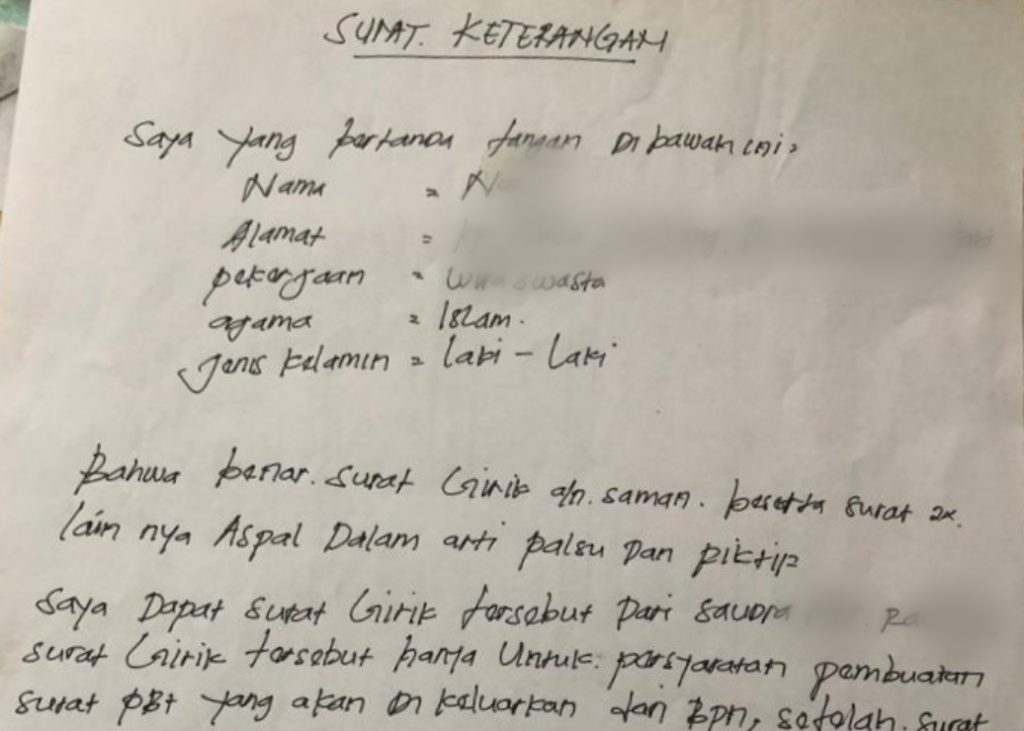 SURAT. KETERANGAN
Saya yang bertanda tangan Dibawah ini,
Nama = N
Alamat =
pekerjaan = wiraswasta
agama = Islam.
Jenis kelamin = laki - Laki
Bahwa benar. surat Girik a/n. saman. beserta surat 2x.
lain nya Aspal Dalam arti palsu Dan piktip
Saya Dapat surat Girik tersebut Dari saudra Ra
surat Girik tersebut hanya Untuk. persyaratan pembuatan
surat PBt yang akan Di keluarkan dari Bpn, setelah. surat